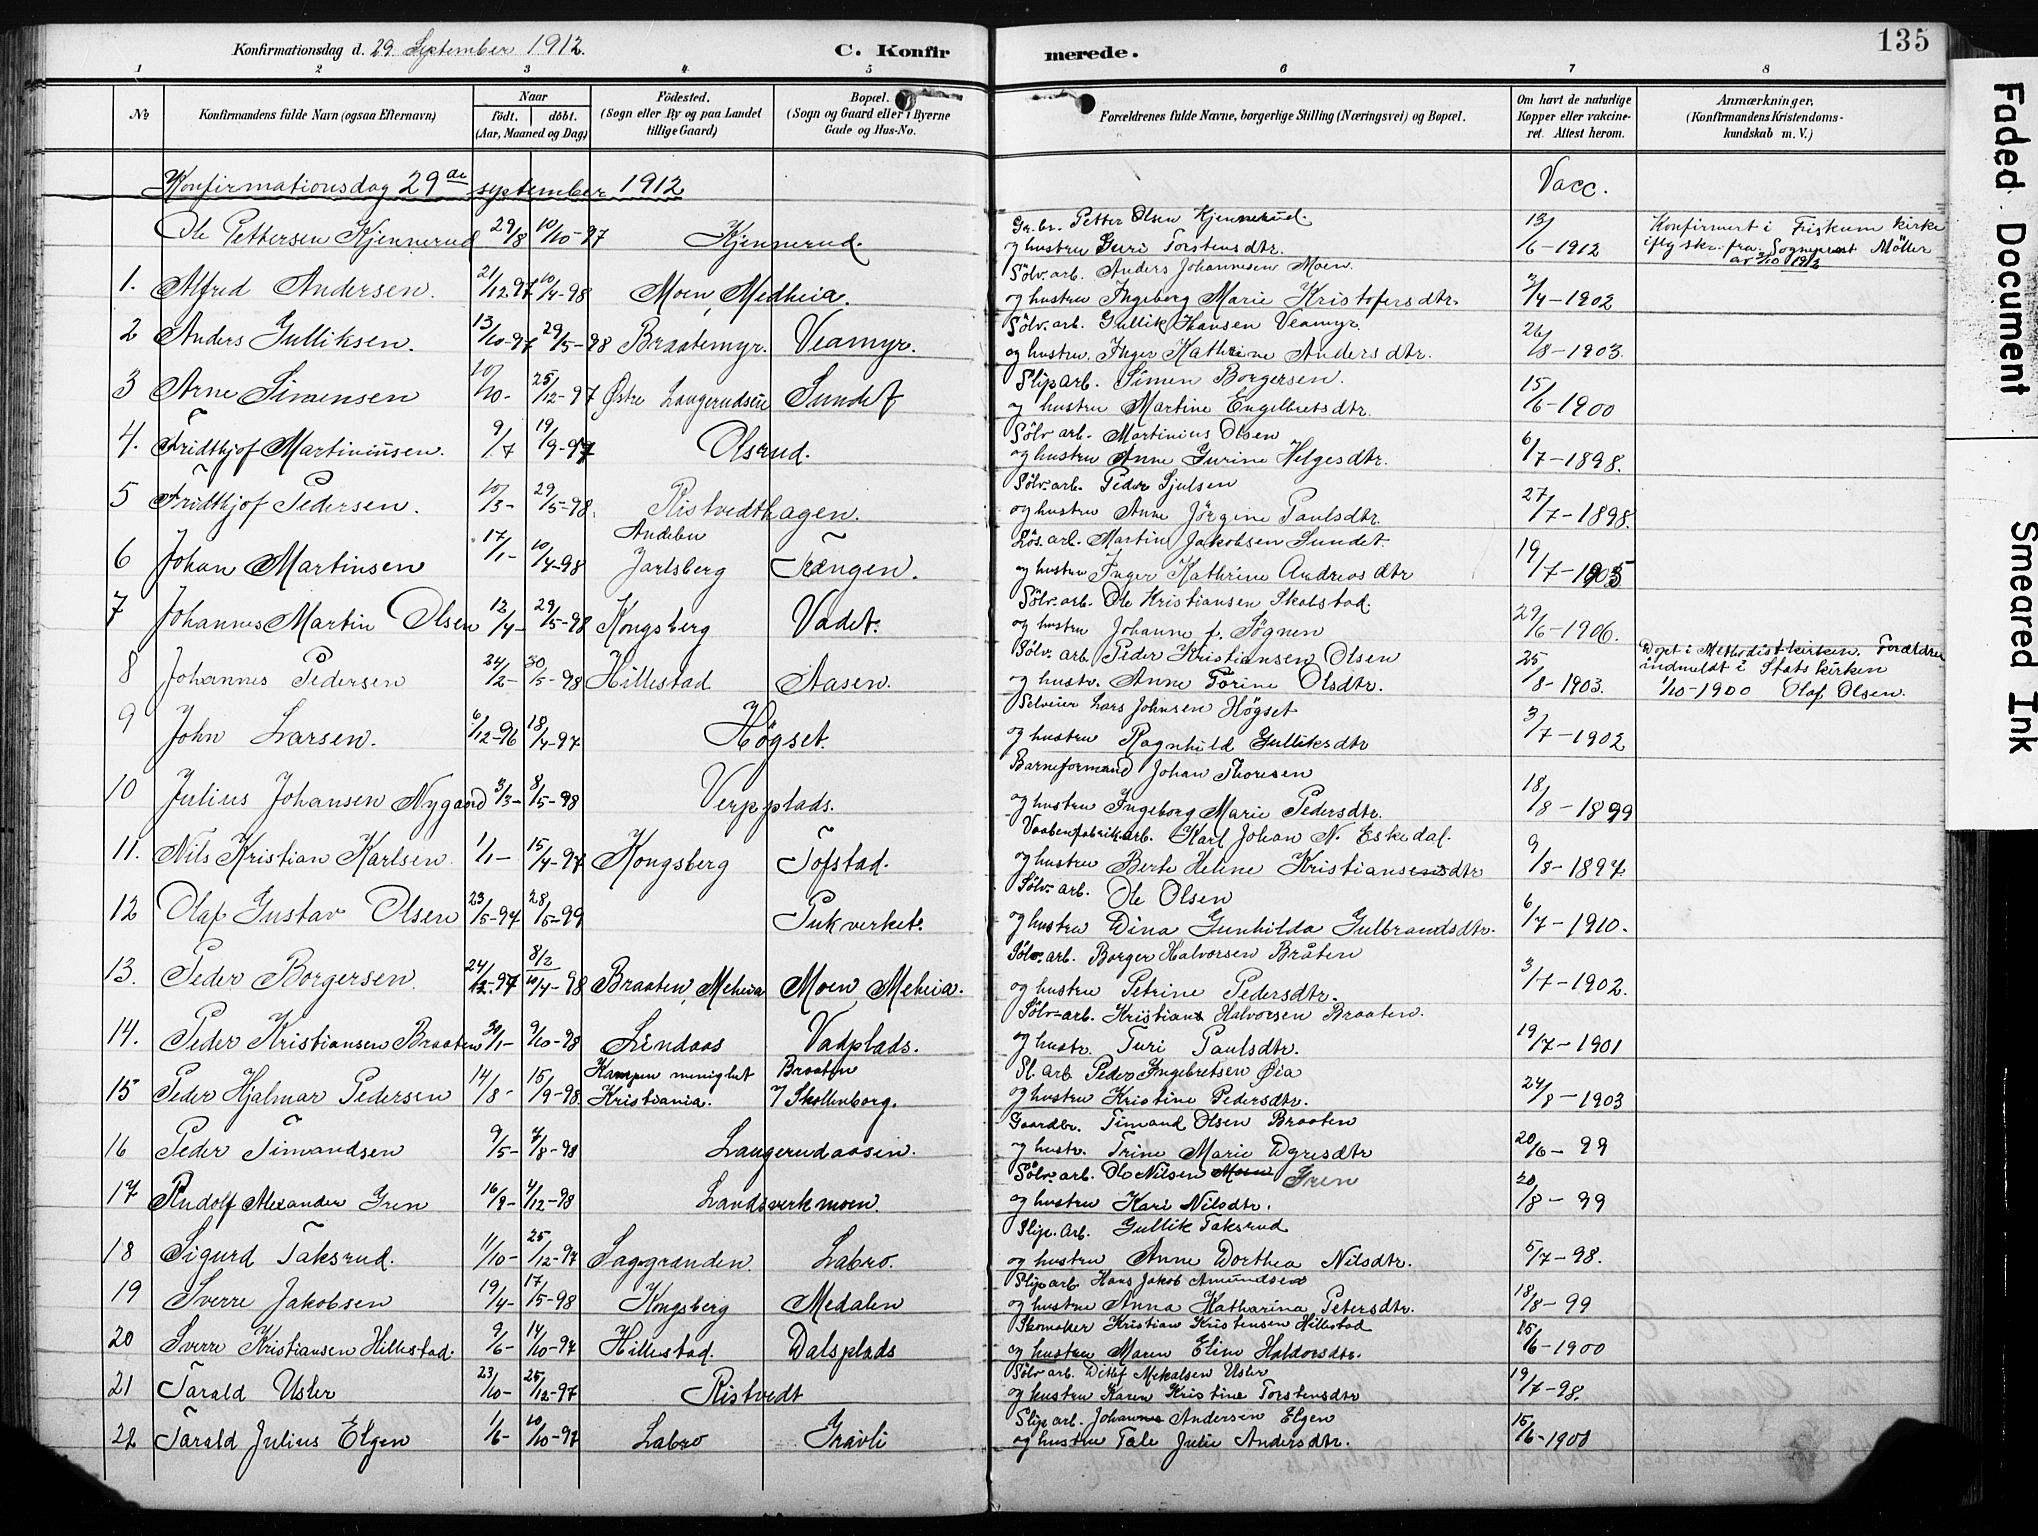 Konfirmationsdag d. 29. September 1912. C. Konfirmerede. 135
1 2 3 4 5 6 7 8
No Konfirmandens fulde Navn (ogsaa Efternavn) Naar født. døbt. (Aar, Maaned og Dag) Fødested. (Sogn eller By og paa Landet tillige Gaard) Bopæl. (Sogn og Gaard eller i Byerne Gade og Hus-No. Forældrenes fulde Navne, borgerlige Stilling (Næringsvei) og Bopæl. Om havt de naturlige Kopper eller vakcineret. Attest herom. Anmærkninger, (Konfirmandens Kristendomskundskab m. V.)
Konfirmationsdag 29de september 1912 Vacc.
Ole Pettersen Kjennerud 29/8 10/10-97 Kjennerud. Gr.br. Petter Olsen Kjennerud. og hustru Guri Torstensdtr. 13/6-1912 Konfirmert i Fiskum kirke iflg skr. fra Sogneprest Möller av 3/10 1912
1. Alfred Andersen. 21/12-97 10/4-98 Moen, Medheia. Sölv.arb. Anders Johannesen Moen. og hustru Ingeborg Marie Kristofersdtr. 2/4-1902
2 Anders Gulliksen. 13/10-97 29/5-98 Braatemyr. Veamyr. Sölv.arb. Gullik Hansen Veamyr. og hustru Inger Kathrine Andersdtr. 26/8-1903.
3 Arne Simensen 10/10- 25/12-97 Østre Langerudseie Sundet Slip arb. Simen Borgersen. og hustru Martine Engelbretsdtr. 15/6-1900
4. Fridthjof Martiniusen. 9/7 19/9-97 Olsrud. Sölv arb. Martinius Olsen og hustru Anne Gurine Helgesdtr. 6/7-1898.
5 Fridthjof Pedersen. 10/3- 29/5-98. Ristvedthagen. Sölv.arb. Peder Sjulsen og hustru Anne Jörgine Paulsdtr. 27/7-1898.
6 Johan Martinsen 17/1- 10/4-98 Andebu Jarlsberg Trængen. Lös.arb. Martin Jakobsen Sundet. og hustru Inger Kathrine Andreasdtr 19/7-1905
7 Johannes Martin Olsen 12/4- 29/5-98 Kongsberg Vadet. Sölv.arb. Ole Kristiansen Skolstad. og hustru Johanne f. Sögnen 29/6-1906.
8 Johannes Pedersen 24/2- 30/5-98 Hillestad Aasen. Sölv. arb. Peder Kristiansen Olsen og hustr. Anne Torine Olsdtr. 25/8-1903. Döpt i Methodistkirken. Forældre indmeldt i Statskirken 1/10-1900 Olaf Olsen.
9 John Larsen. 6/12-96 18/4-97 Högset. Selveier Lars Johnsen Högset og hustru Ragnhild Gulliksdtr 3/7-1902
10 Julius Johansen Nygaard 3/3- 8/5-98 Verpplads. Barneformand Johan Thoresen og hustru Ingeborg Marie Pedersdtr. 18/8-1899
11. Nils Kristian Karlsen. 1/1- 15/4-97 Kongsberg Tofstad. Vaabenfabrikarb. Karl Johan N. Eskedal. og hustru Berte Helene Kristiansensdtr 9/8-1897
12 Olaf Gustav Olsen 23/5-97 28/5-99 Pukverket. Sölv-arb. Ole Olsen og hustru Dina Gunhilda Gulbrandsdtr. 6/7-1910.
13. Peder Borgersen. 24/12-97 8/2 10/4-98 Braaten, Meheia Moen, Meheia. Sölv.arb. Borger Halvorsen Bråten og hustru Petrine Pedersdtr. 3/7-1902.
14. Peder Kristiansen Braaten 30/1- 9/10-98 Lindaas Vadplads. Sölv-arb. Kristians Halvorsen Braaten. og hustr. Turi Paulsdtr. 19/7-1901
15 Peder Hjalmar Pedersen 14/8- 15/9-98. Kampen menighet Kristiania. Braaten / Skollenborg. Sl. arb. Peder Ingebretsen Øia og hustru Kristine Pedersdtr. 24/8-1903
16 Peder Timandsen 9/5- 7/8-98 Langerudaasen. Gaardbr. Timand Olsen Braaten og hustr. Trine Marie Dyresdtr 20/6-99
17 Rudolf Alexander Gren 16/9- 4/12-98 Landsverkmoen. Sölv.arb. Ole Nilsen Moen Gren og hustru Kari Nilsdtr. 20/8-99
18 Sigurd Taksrud. 11/10- 25/12-97 Saggrenden Labro. Slip. Arb. Gullik Taksrud og hustru Anne Dorthea Nilsdtr. 5/7-98.
19 Sverre Jakobsen 19/4- 17/15-98 Kongsberg Medalen Sliparb Hans Jakob Amundsen og hustru Anna Katharina Petersdtr. 18/8-99
20 Sverre Kristiansen Hillestad. 9/6- 14/10-97 Hillestad. Dalsplads Skomaker Kristian Kristensen Hillestad og hustru Maren Eline Haldorsdtr. 15/6-1900
21 Tarald Usler 23/10- 25/12-97 Ristvedt Sölv arb. Ditlef Mekalsen Usler og hustru Karen Kristine Torstensdtr 19/7-98.
22 Tarald Julius Elgen 1/6- 10/10-97 Labro Gravli Slip arb. Johannes Andersen Elgen og hustru Tale Julie Andersdtr. 15/6-1900
Faded Document
Smeared Ink